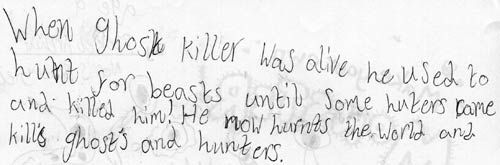 When ghost killer was alive he used to
hunt for beasts until some huters came
and killed him! He now hurnts the world and
kill's ghost's and hunters.